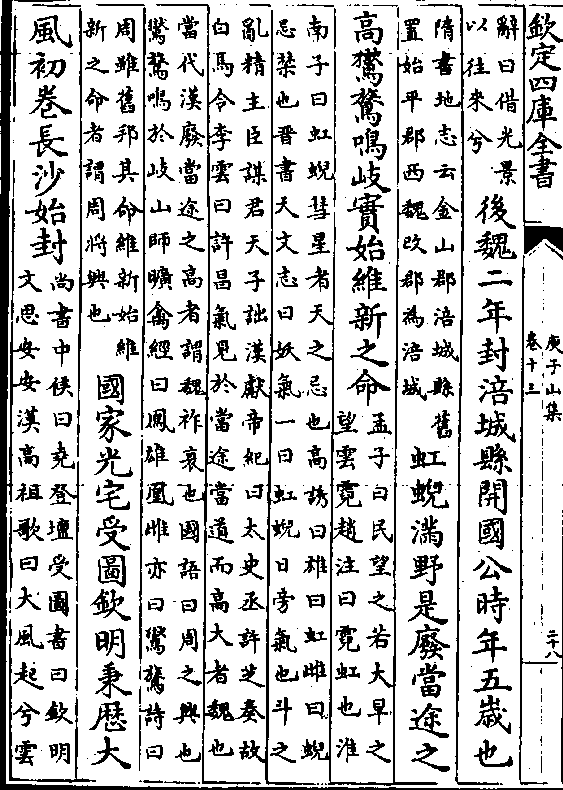 欽定四庫全書
庚子山集
卷十三
二十八
辭曰借光景
以往來兮
後魏二年封涪城縣開國公時年五歲也
隋書地志云金山郡涪城縣舊
置始平郡西魏改郡為涪城
虹蜺滿野是廢當途之
高鸑鷟鳴岐實始維新之命
孟子曰民望之若大旱之
望雲霓趙注曰霓虹也淮
南子曰虹蜺彗星者天之忌也高誘曰雄曰虹雌曰蜺
忌禁也晉書天文志曰妖氣一曰虹蜺日旁氣也斗之
亂精主臣謀君天子詘漢獻帝紀曰太史丞許芝奏故
白馬令李雲曰許昌氣見於當途當道而高大者魏也
當代漢廢當途之高者謂魏祚衰也國語曰周之興也
鸑鷟鳴於岐山師曠禽經曰鳳雄凰雌亦曰鸑鷟詩曰
周雖舊邦其命維新始維
新之命者謂周將興也
國家光宅受圖欽明秉歴大
風初卷長沙始封
尚書中侯曰堯登壇受圖書曰欽明
文思安安漢高祖歌曰大風起兮雲